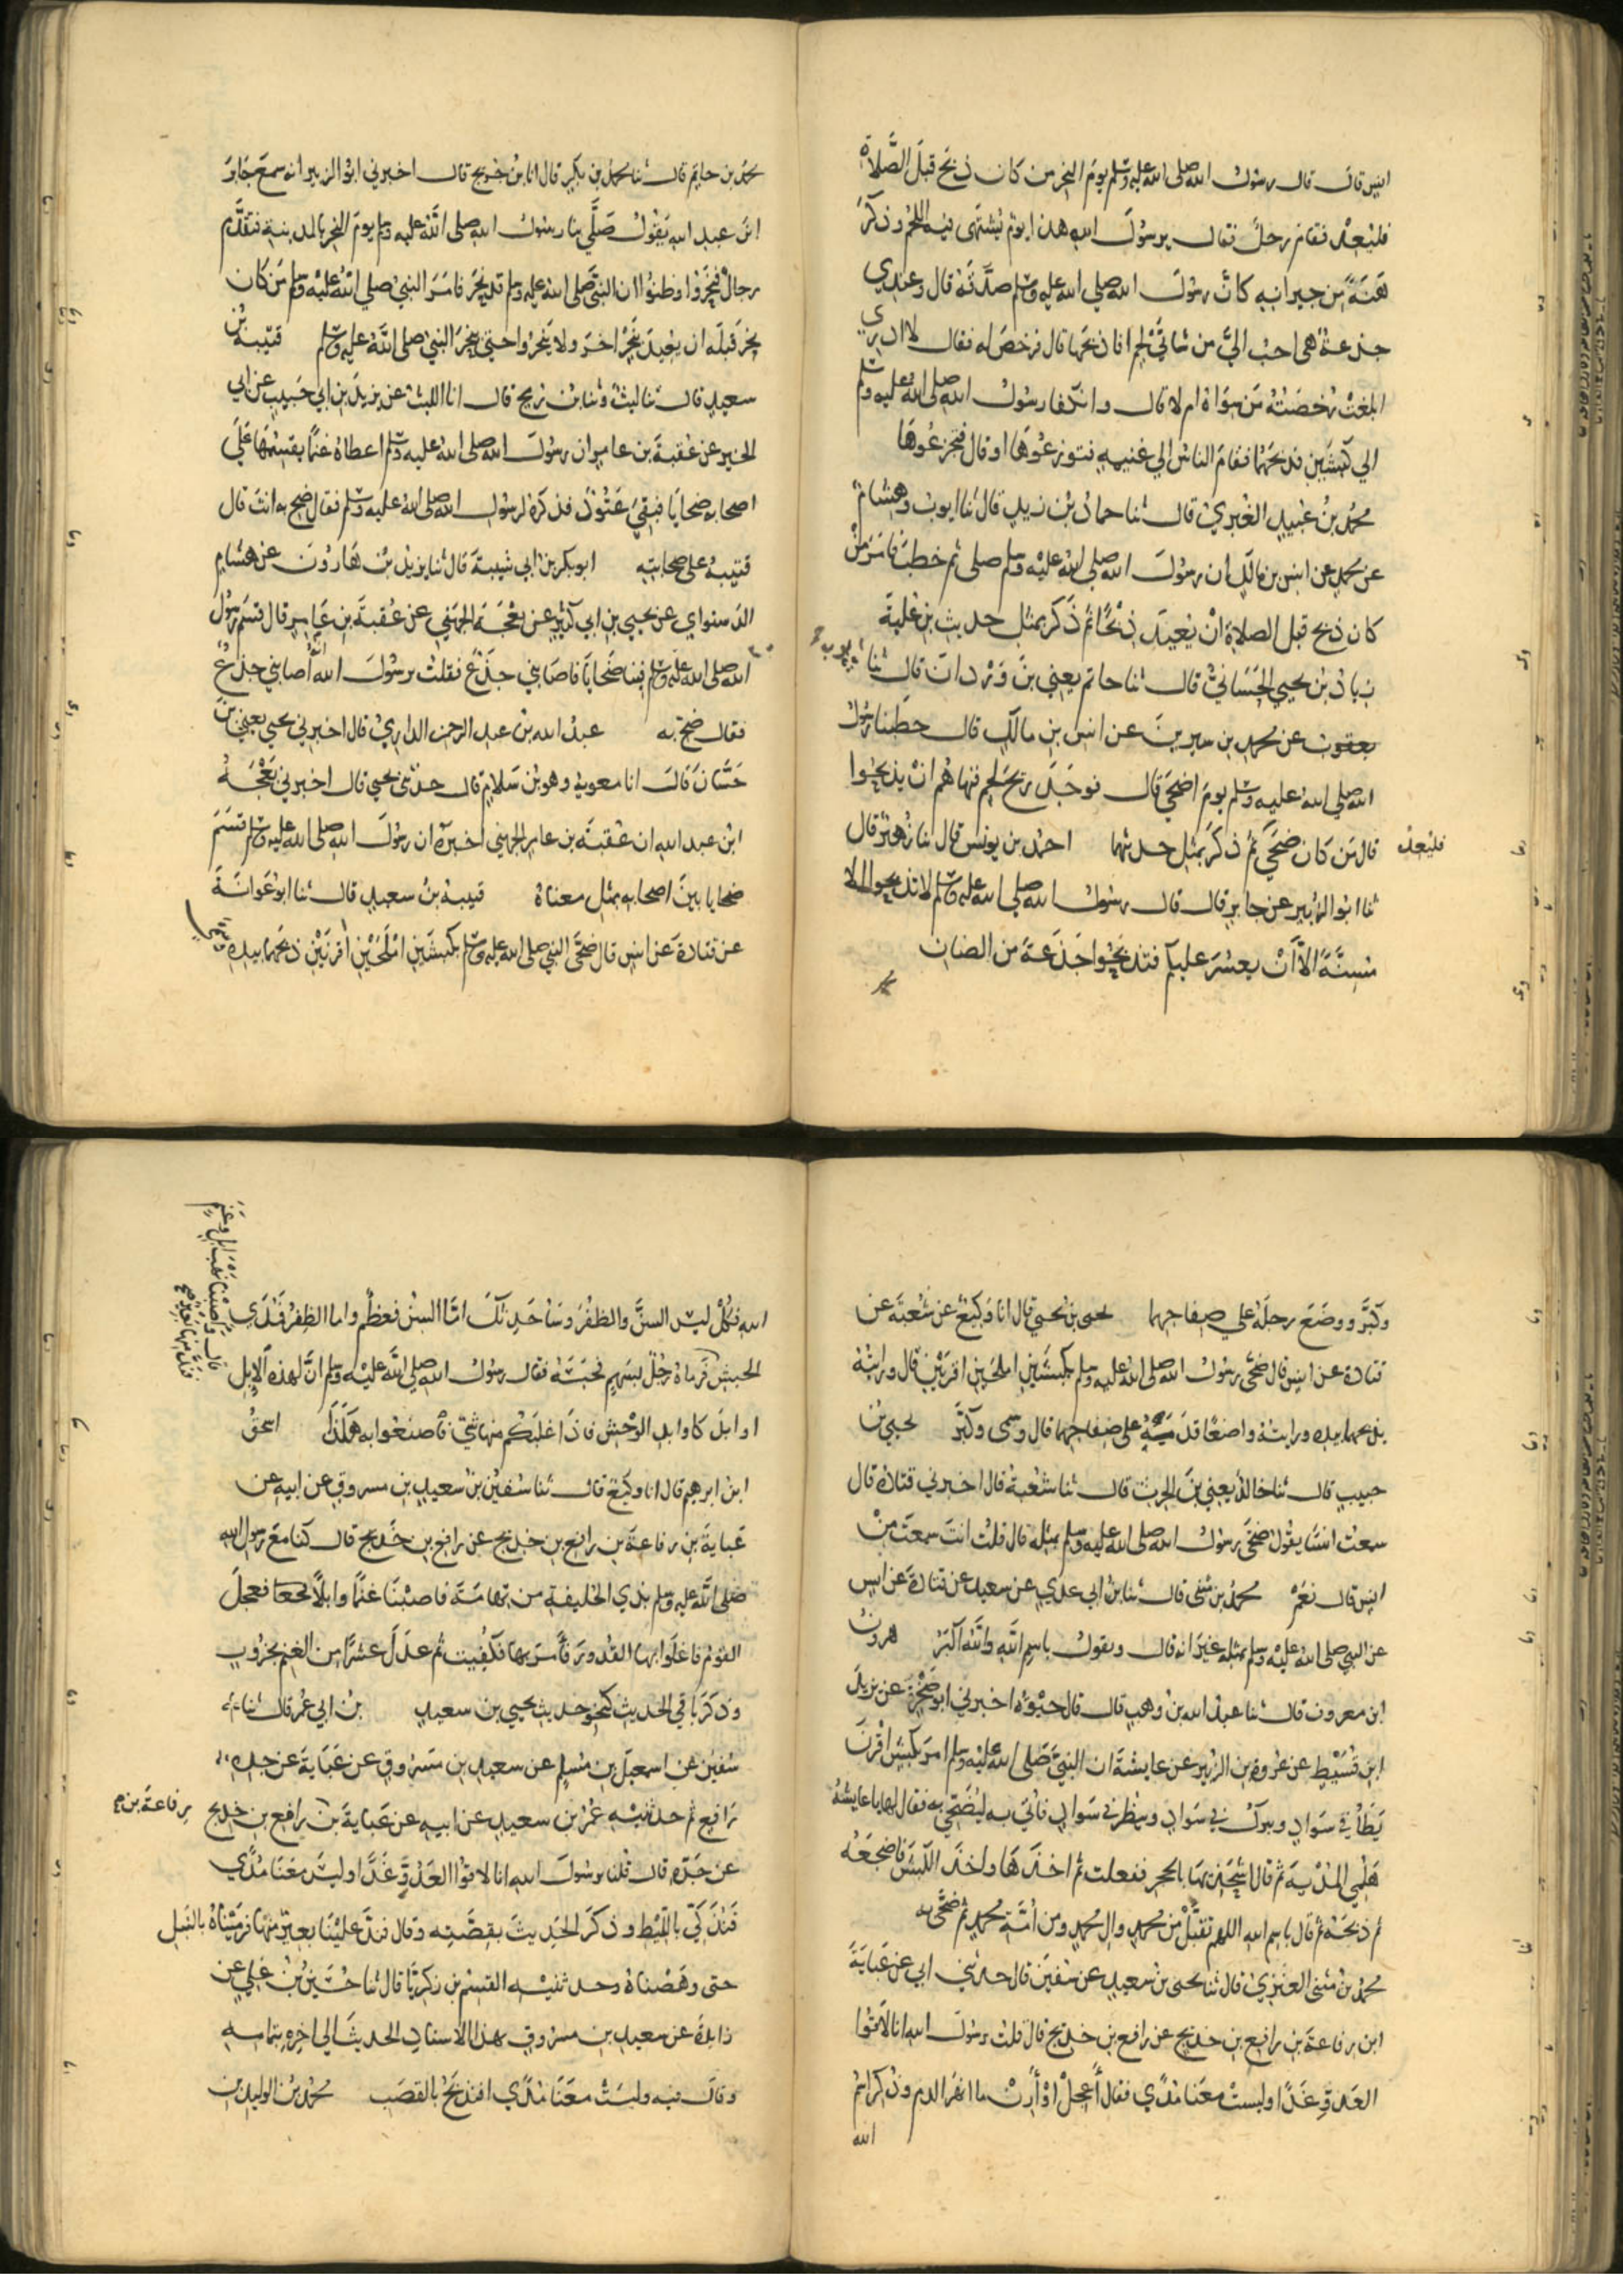 انس قال قال رسول الله صلى الله عليه وسلم يوم النحر من كان ذبح قبل الصلاة
فليعد فقام رجل فقال يرسول الله هذا يوم يشتهى فيه اللحم وذكر
هنة من جيرانه كان رسول الله صلي الله عليه وسلم صدقه قال وعندي
جذعة هي احب اليَّ من شاتَيْ لحم افاذبحها قال فرخص له فقال لا ادري
ابلغت رخصته من سواه ام لا قال وانكفا رسول الله صلى الله عليه وسلم
الي كبشين فذبحهما فقام الناس الي غنيمه فتوزعوها او قال فتجزعوها
محمد بن عبيد الغبري قال ثنا حماد بن زيد قال ثنا ايوب وهشام
عن محمد عن انس بن مالك ان رسول الله صلي الله عليه وسلم صلى ثم خطب فامر من
كان ذبح قبل الصلاة ان يعيد ذبحًا ثم ذكر بمثل حديث بن علية
زياد بن يحيي الحساني قال ثنا حاتم يعني بن وردان قال ثنا
يعقوب عن محمد بن سيرين عن انس بن مالك قال خطبنا رسول
الله صلي الله عليه وسلم يوم اضحي قال فوجد ريح لحم فنهاهم ان يذبحوا
قال من كان ضحي ثم ذكر بمثل حديثهما احمد بن يونس قال ثنا زهير قال
فليعد
ثنا ابو الزبير عن جابر قال قال رسول الله صلي الله عليه وسلم لا تذبحوا الا
مسنة الا ان يعسر عليكم فتذبحوا جذعة من الضان
محمد بن حاتم قال ثنا محمد بن بكر قال انا بن جريج قال اخبرني ابو الزبير انه سمع جابر
ابن عبد الله يقول صلي بنا رسول الله صلى الله عليه وسلم يوم النحر بالمدينة فتقدم
رجال فنحروا وظنوا ان النبي صلى الله عليه وسلم قد نحر فامر النبي صلي الله عليه وسلم من كان
نحر قبله ان يعيد بنحر اخر ولا ينحروا حتي ينحر النبي صلي الله عليه وسلم قتيبة بن
سعيد قال ثنا ليث وثنا بن رمح قال انا الليث عن يزيد بن ابي حبيب عن ابي
الخير عن عقبة بن عامر ان رسول الله صلى الله عليه وسلم اعطاه غنما يقسمها علي
اصحابه ضحايا فبقي عتود فذكره لرسول الله صلى الله عليه وسلم فقال ضح به انت قال
قتيبة على صحابته ابو بكر بن ابي شيبة قال ثنا يزيد بن هارون عن هشام
الدستواي عن يحيي بن ابي كثير عن بعجة الجهني عن عقبة بن عامر قال قسم رسول
الله صلى الله عليه وسلم فينا ضحايا فاصابني جذع فقلت يرسول الله اصابني جذع
فقال ضح به عبد الله بن عبد الرحمن الداري قال اخبرني يحيي يعني بن
حسان قال انا معوية وهو بن سلام قال حدثني يحيي قال اخبرني بعجة
ابن عبد الله ان عقبة بن عامر الجهني اخبره ان رسول الله صلى الله عليه وسلم قسم
ضحايا بين اصحابه بمثل معناه قتيبة بن سعيد قال ثنا ابو عوانة
عن قتادة عن انس قال ضحي النبي صلى الله عليه وسلم بكبشين املحين اقرنين ذبحهما بيده
وسمى
وكبر ووضع رجله علي صفاحهما يحيى بن يحيي قال انا وكيع عن شعبة عن
قتادة عن انس قال ضحى رسول الله صلى الله عليه وسلم بكبشين املحين اقرنين قال ورايته
يذبحهما بيده ورايته واضعًا قدمه على صفاحهما قال وسمى وكبر يحيي بن
حبيب قال ثنا خالد يعني بن الحرث قال ثنا شعبة قال اخبرني قتادة قال
سمعت انسًا يقول ضحى رسول الله صلى الله عليه وسلم بمثله قال قلت انت سمعت من
انس قال نعم محمد بن مثنى قال ثنا بن ابي عدي عن سعيد عن قتادة عن انس
عن النبي صلى الله عليه وسلم بمثله غير انه قال ويقول باسم الله والله اكبر هرون
ابن معروف قال ثنا عبد الله بن وهب قال قال حيوة اخبرني ابو صخرة عن يزيد
ابن قسيط عن عروة بن الزبير عن عايشة ان النبي صلى الله عليه وسلم امر بكبش اقرن
يطأ في سواد ويبرك في سواد وينظر في سواد فاتي به ليضحي به فقال لها يا عايشة
هلمي المدية ثم قال اشحذيها بالحجر ففعلت ثم اخذها واخذ الكبش فاضجعه
ثم ذبحه ثم قال باسم الله اللهم تقبل من محمد وال محمد ومن امة محمد ثم ضحى به
محمد بن مثنى العنزي قال ثنا يحيى بن سعيد عن سفين قال حدثني ابي عن عباية
ابن رفاعة بن رافع بن خديج عن رافع بن خديج قال قلت يرسول الله انا لاقوا
العدو غدًا وليست معنا مدًي فقال أعجل او أرن ما انهر الدم وذكر اسم
الله
واصبنا نهب ابل وغنم
الله فكل ليس السن والظفر وساحدثك اما السن فعظم واما الظفر فمدي
الحبش فرماه رجل بسهم فحبسه فقال رسول الله صلي الله عليه وسلم ان لهذه الابل
اوابد كاوابد الوحش فاذا غلبكم منها شي فاصنعوا به هكذا اسحق
ابن ابرهيم قال انا وكيع قال ثنا سفين بن سعيد بن مسروق عن ابيه عن
عباية بن رفاعة بن رافع بن خديج عن رافع بن خديج قال كنا مع رسول الله
صلى الله عليه وسلم بذي الحليفة من تهامة فاصبنا غنمًا وابلًا فعجل
القوم فاغلوا بها القدور فأمر بها فكفيت ثم عدل عشرًا من الغنم بجزور
وذكر باقي الحديث كنحو حديث يحيي بن سعيد بن ابي عمر قال ثنا
سفين عن اسمعيل بن مسلم عن سعيد بن مسروق عن عباية عن جده
رافع ثم حدثنيه عمر بن سعيد عن ابيه عن عباية بن رافع بن خديج
رفاعة بن
عن جده قال قلنا يرسول الله انا لاقوا العدو غدًا وليس معنا مدًي
فنذكي بالليط وذكر الحديث بقصته وقال فند علينا بعير منها فرميناه بالنبل
حتى وهصناه وحدثنيه القسم بن زكريا قال ثنا حسين بن علي عن
زايدة عن سعيد بن مسروق بهذا الاسناد الحديث الي اخره بتمامه
وقال فيه وليست معنا مدًي افنذبح بالقصب محمد بن الوليد بن